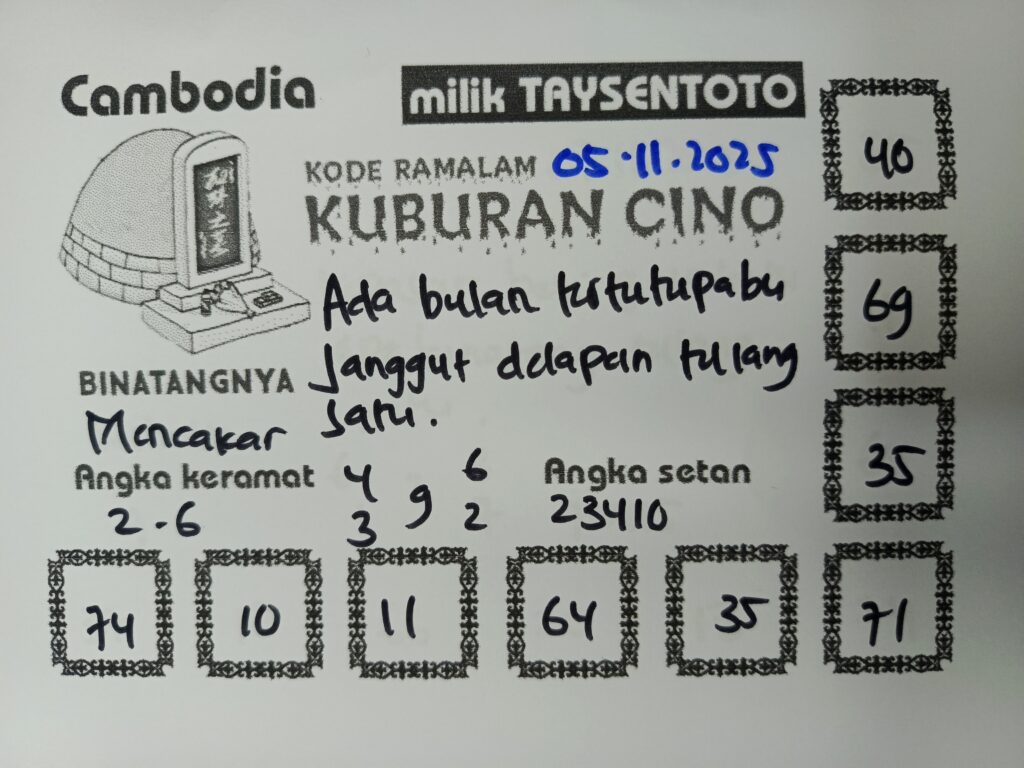 Cambodia
milik TAYSENTOTO
KODE RAMALAM 05.11.2025
KUBURAN CINO
Ada bulan tertutupabu
Janggut delapan tulang
satu.
BINATANGNYA
Mencakar
Angka keramat
2-6
4 6
9
3 2
Angka setan
23410
40
69
35
74 10 11 64 35 71